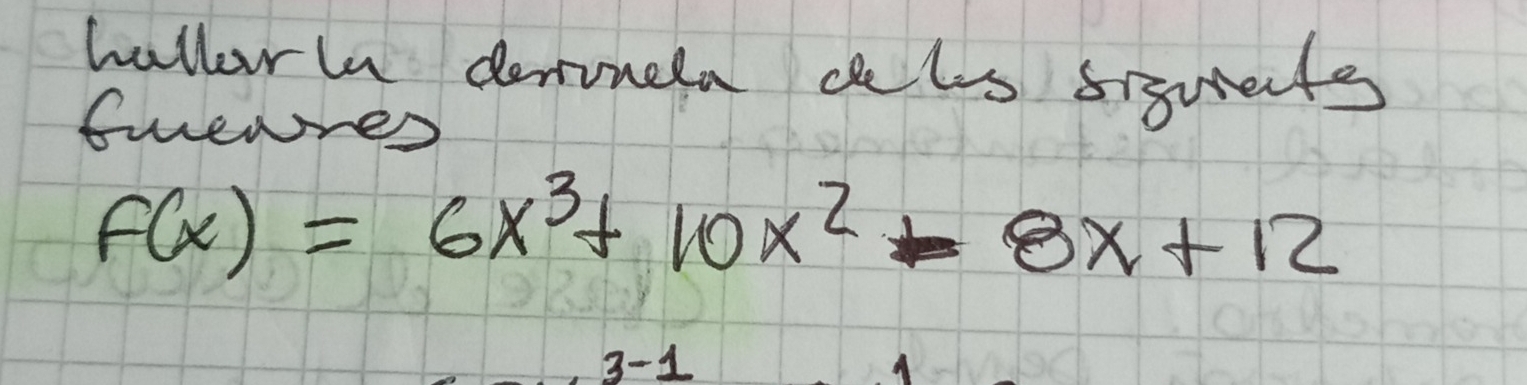 hallar la derivada de las siguientes
funciones
F(x) = 6x³ + 10x² - 8x + 12
3-1 1